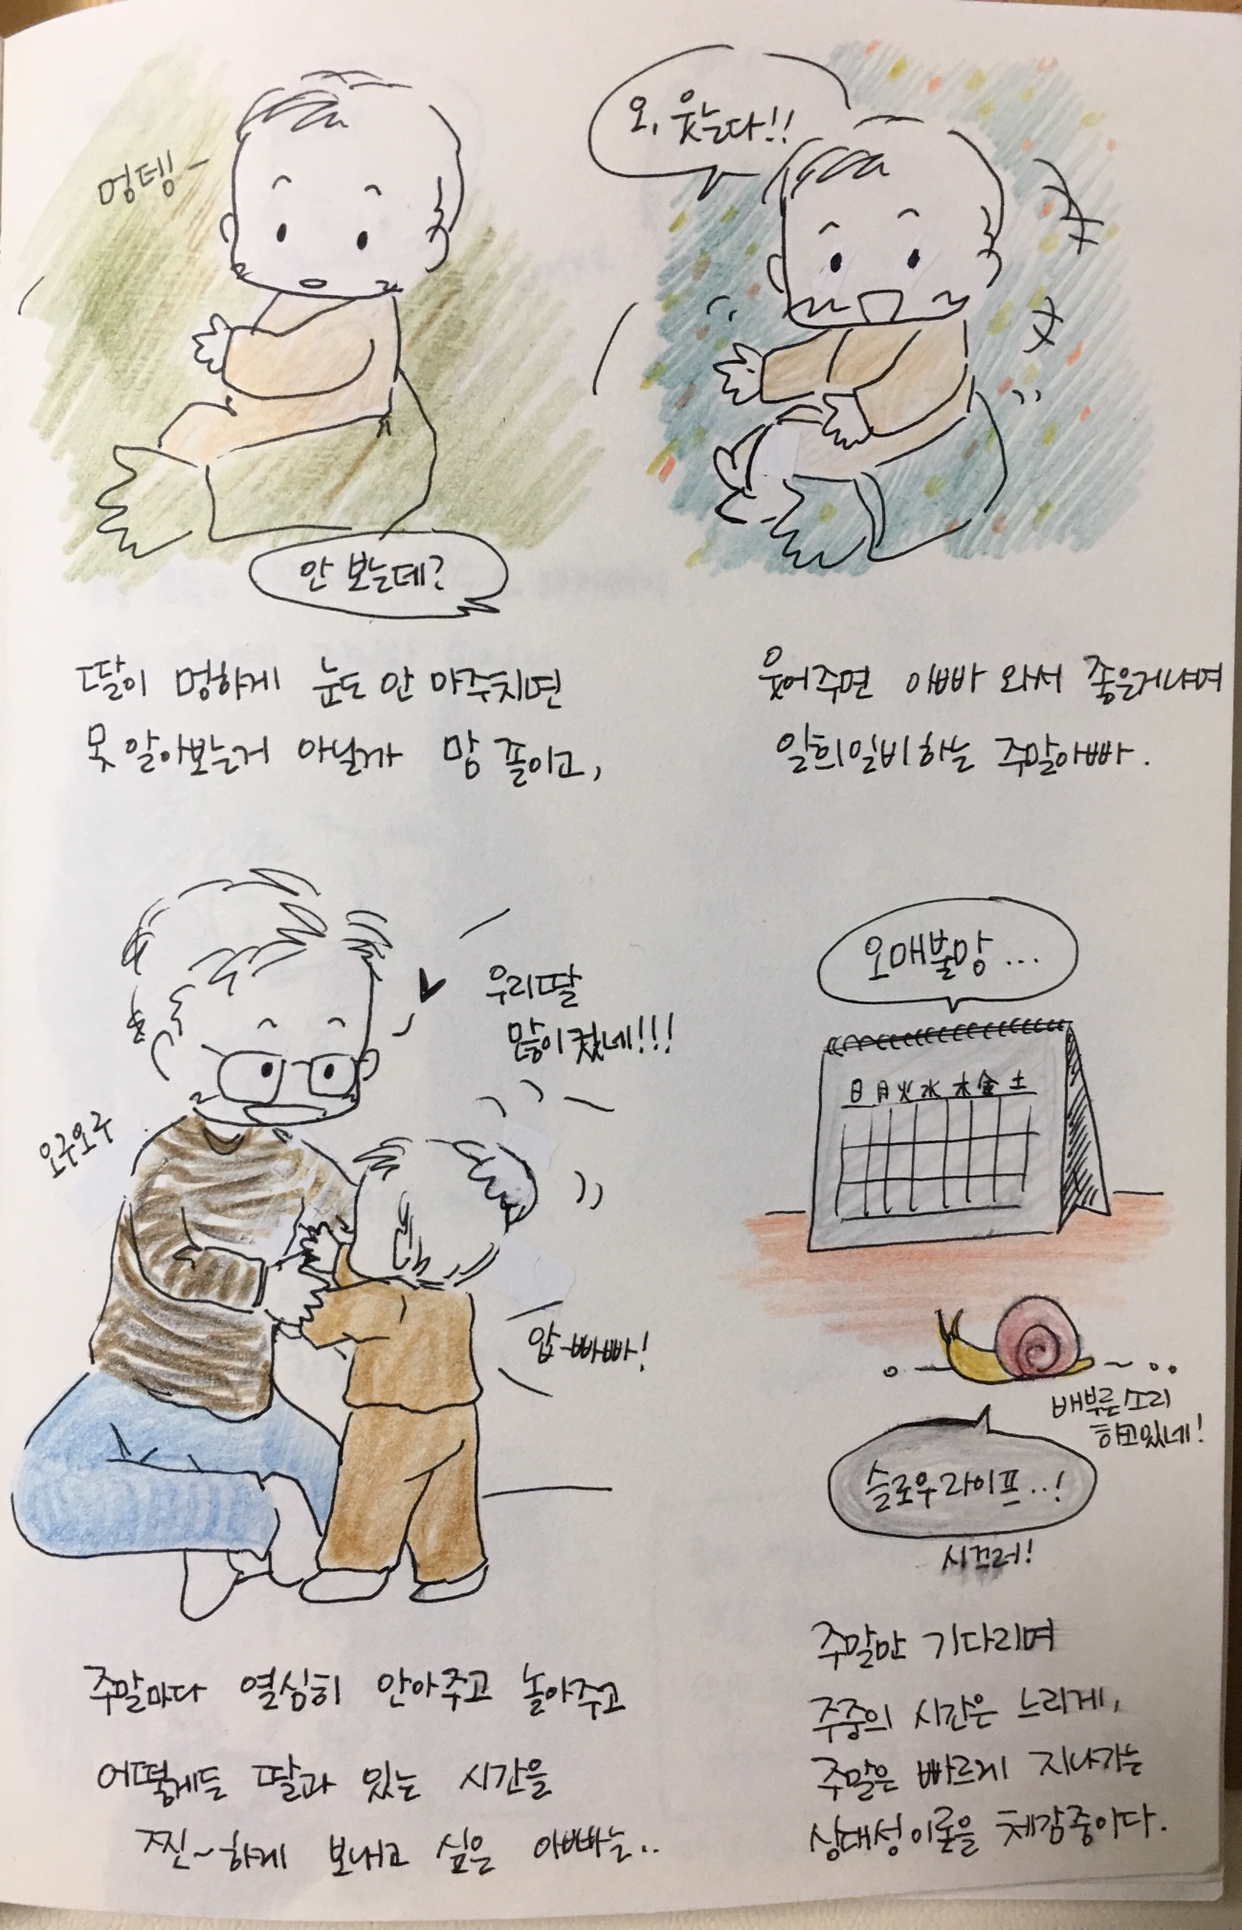 멍뎅~
안 보는데?
딸이 멍하게 눈도 안 마주치면
못 알아보는거 아닐까 맘 졸이고,
오, 웃는다!!
웃어주면 아빠 와서 좋은거냐며
일희일비하는 주말아빠.
우리딸
많이컸네!!!
오구오구
압-빠빠!
주말마다 열심히 안아주고 놀아주고
어떻게든 딸과 있는 시간을
찐~하게 보내고 싶은 아빠는..
오매불망...
日 月 火 水 木 金 土
배부른소리
하고있네!
슬로우라이프..!
시끄러!
주말만 기다리며
주중의 시간은 느리게,
주말은 빠르게 지나가는
상대성이론을 체감중이다.